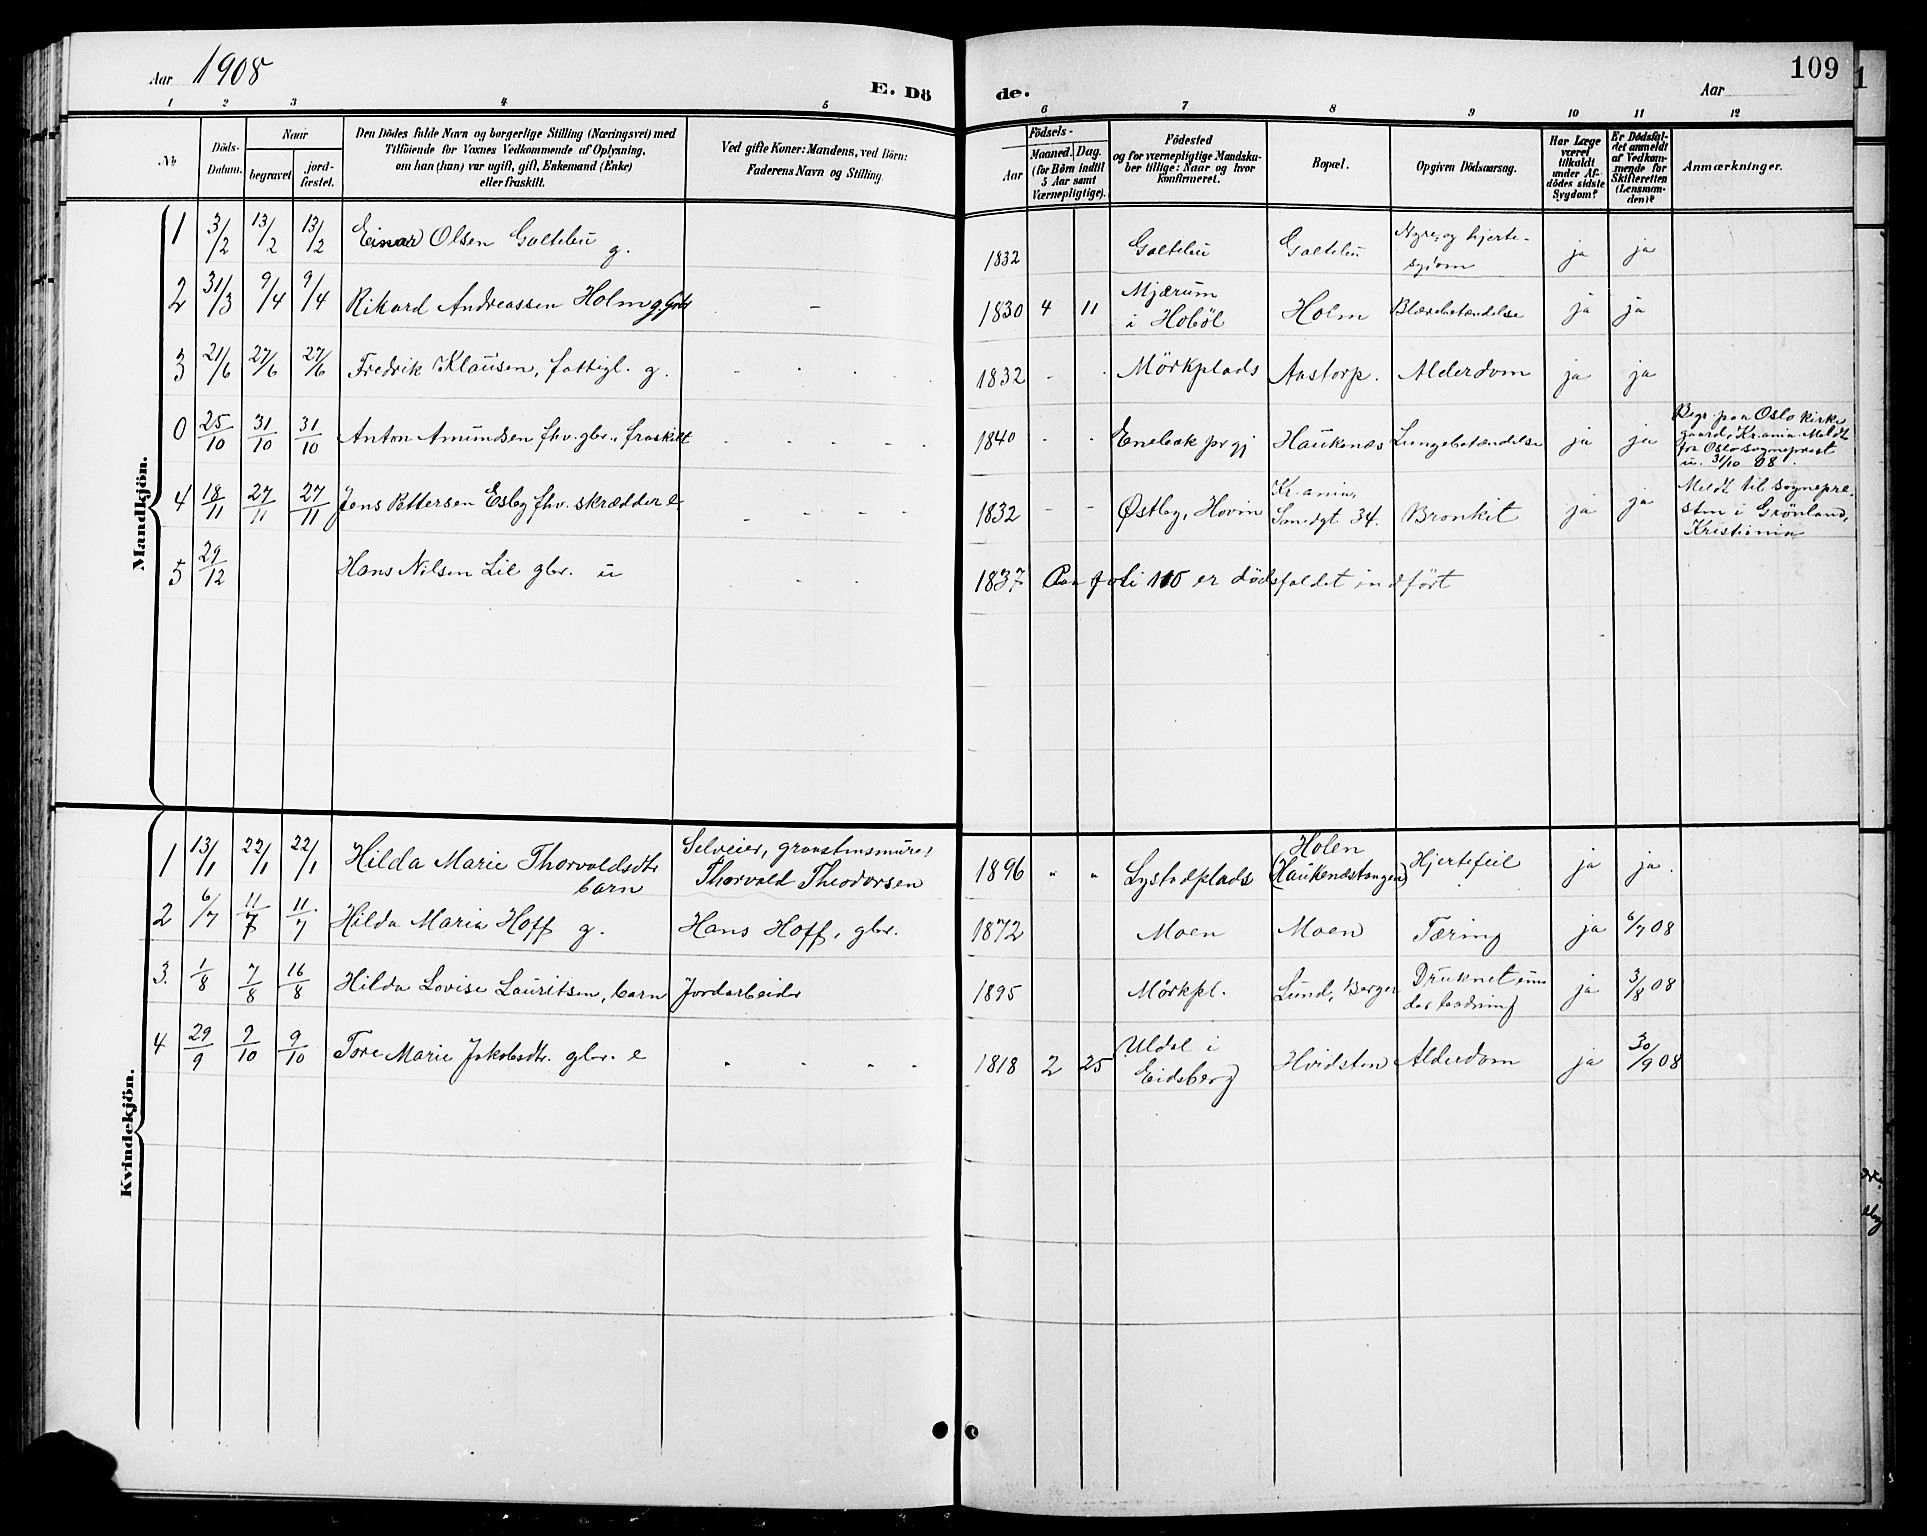 Aar 1908
E. Dö
de.
Aar
109
1 2 3 4 5 6 7 8 9 10 11 12
No
Döds-
Datum.
Naar
begravet
jord-
fæstet.
Den Dödes fulde Navn og borgerlige Stilling (Næringsvei) med
Tilföiende for Voxnes Vedkommende af Oplysning,
om han (hun) var ugift, gift, Enkemand (Enke)
eller fraskilt.
Ved gifte Koner: Mandens, ved Börn:
Faderens Navn og Stilling.
Födsels-
Aar
Maaned. Dag.
(for Börn indtil
5 Aar samt
Værnepligtige).
Födested
og for værnepligtige Mandska-
ber tillige: Naar og hvor
konfirmeret.
Bopæl.
Opgiven Dödsaarsag.
Har Læge
været
tilkaldt
under Af-
dödes sidste
Sygdom?
Er Dödsfal-
det anmeldt
af Vedkom-
mende for
Skifteretten
(Lensman-
den)?
Anmærkninger.
Mandkjön.
1 3/2 13/2 13/2 Einar Olsen Galteleu g. 1832 Galteleu Galteleu Nyre- og hjerte-
sydom ja ja
2 31/3 9/4 9/4 Rikard Andreassen Holm g. – 1830 4 11 Mjærum
i Hoböl Holm Blærebetændelse ja ja
3 21/6 27/6 27/6 Fredrik Klausen, fattigl. g. 1832 Mörkplads Aastorp. Alderdom ja ja
0 25/10 31/10 31/10 Anton Amundsen fhv. gbr., fraskilt 1840 Enebak prgj Haukenæs Lungebetændelse ja ja Begr. paa Oslo kirke
gaard, Kr.ania. Meldt
fra Oslo sogneprest
u. 31/10 08.
4 18/11 27/11 27/11 Jens Pettersen Esby fhv. skrædder e 1832 Østby, Hovin Kr.ania,
Smedgt 34. Bronkit ja ja Meldt til sognepre-
sten i Grönland,
Kristiania
5 29/12 Hans Nilsen Lie gbr. u 1837 Paa foli 110 er dödsfaldet indfört
Kvindekjön.
1 13/1 22/1 22/1 Hilda Marie Thorvaldsdtr
barn Selveier, graastensmurer
Thorvald Theodorsen 1896 " " Lystadplads Holen
(Haukenæstangen) Hjertefeil ja ja.
2 6/7 11/7 11/7 Hilda Maria Hoff g. Hans Hoff, gbr. 1872 Moen Moen Tæring ja 6/7 08
3. 1/8 7/8 16/8 Hilda Lovise Lauritsen, barn Jordarbeider 1895 Mörkpl. Lund, Berger Druknet un
der badning ja 3/8 08
4 29/9 9/10 9/10 Tore Marie Jakobsdtr. gbr. e 1818 2 25 Uldal i
Eidsberg Hvidsten Alderdom ja 30/9 08